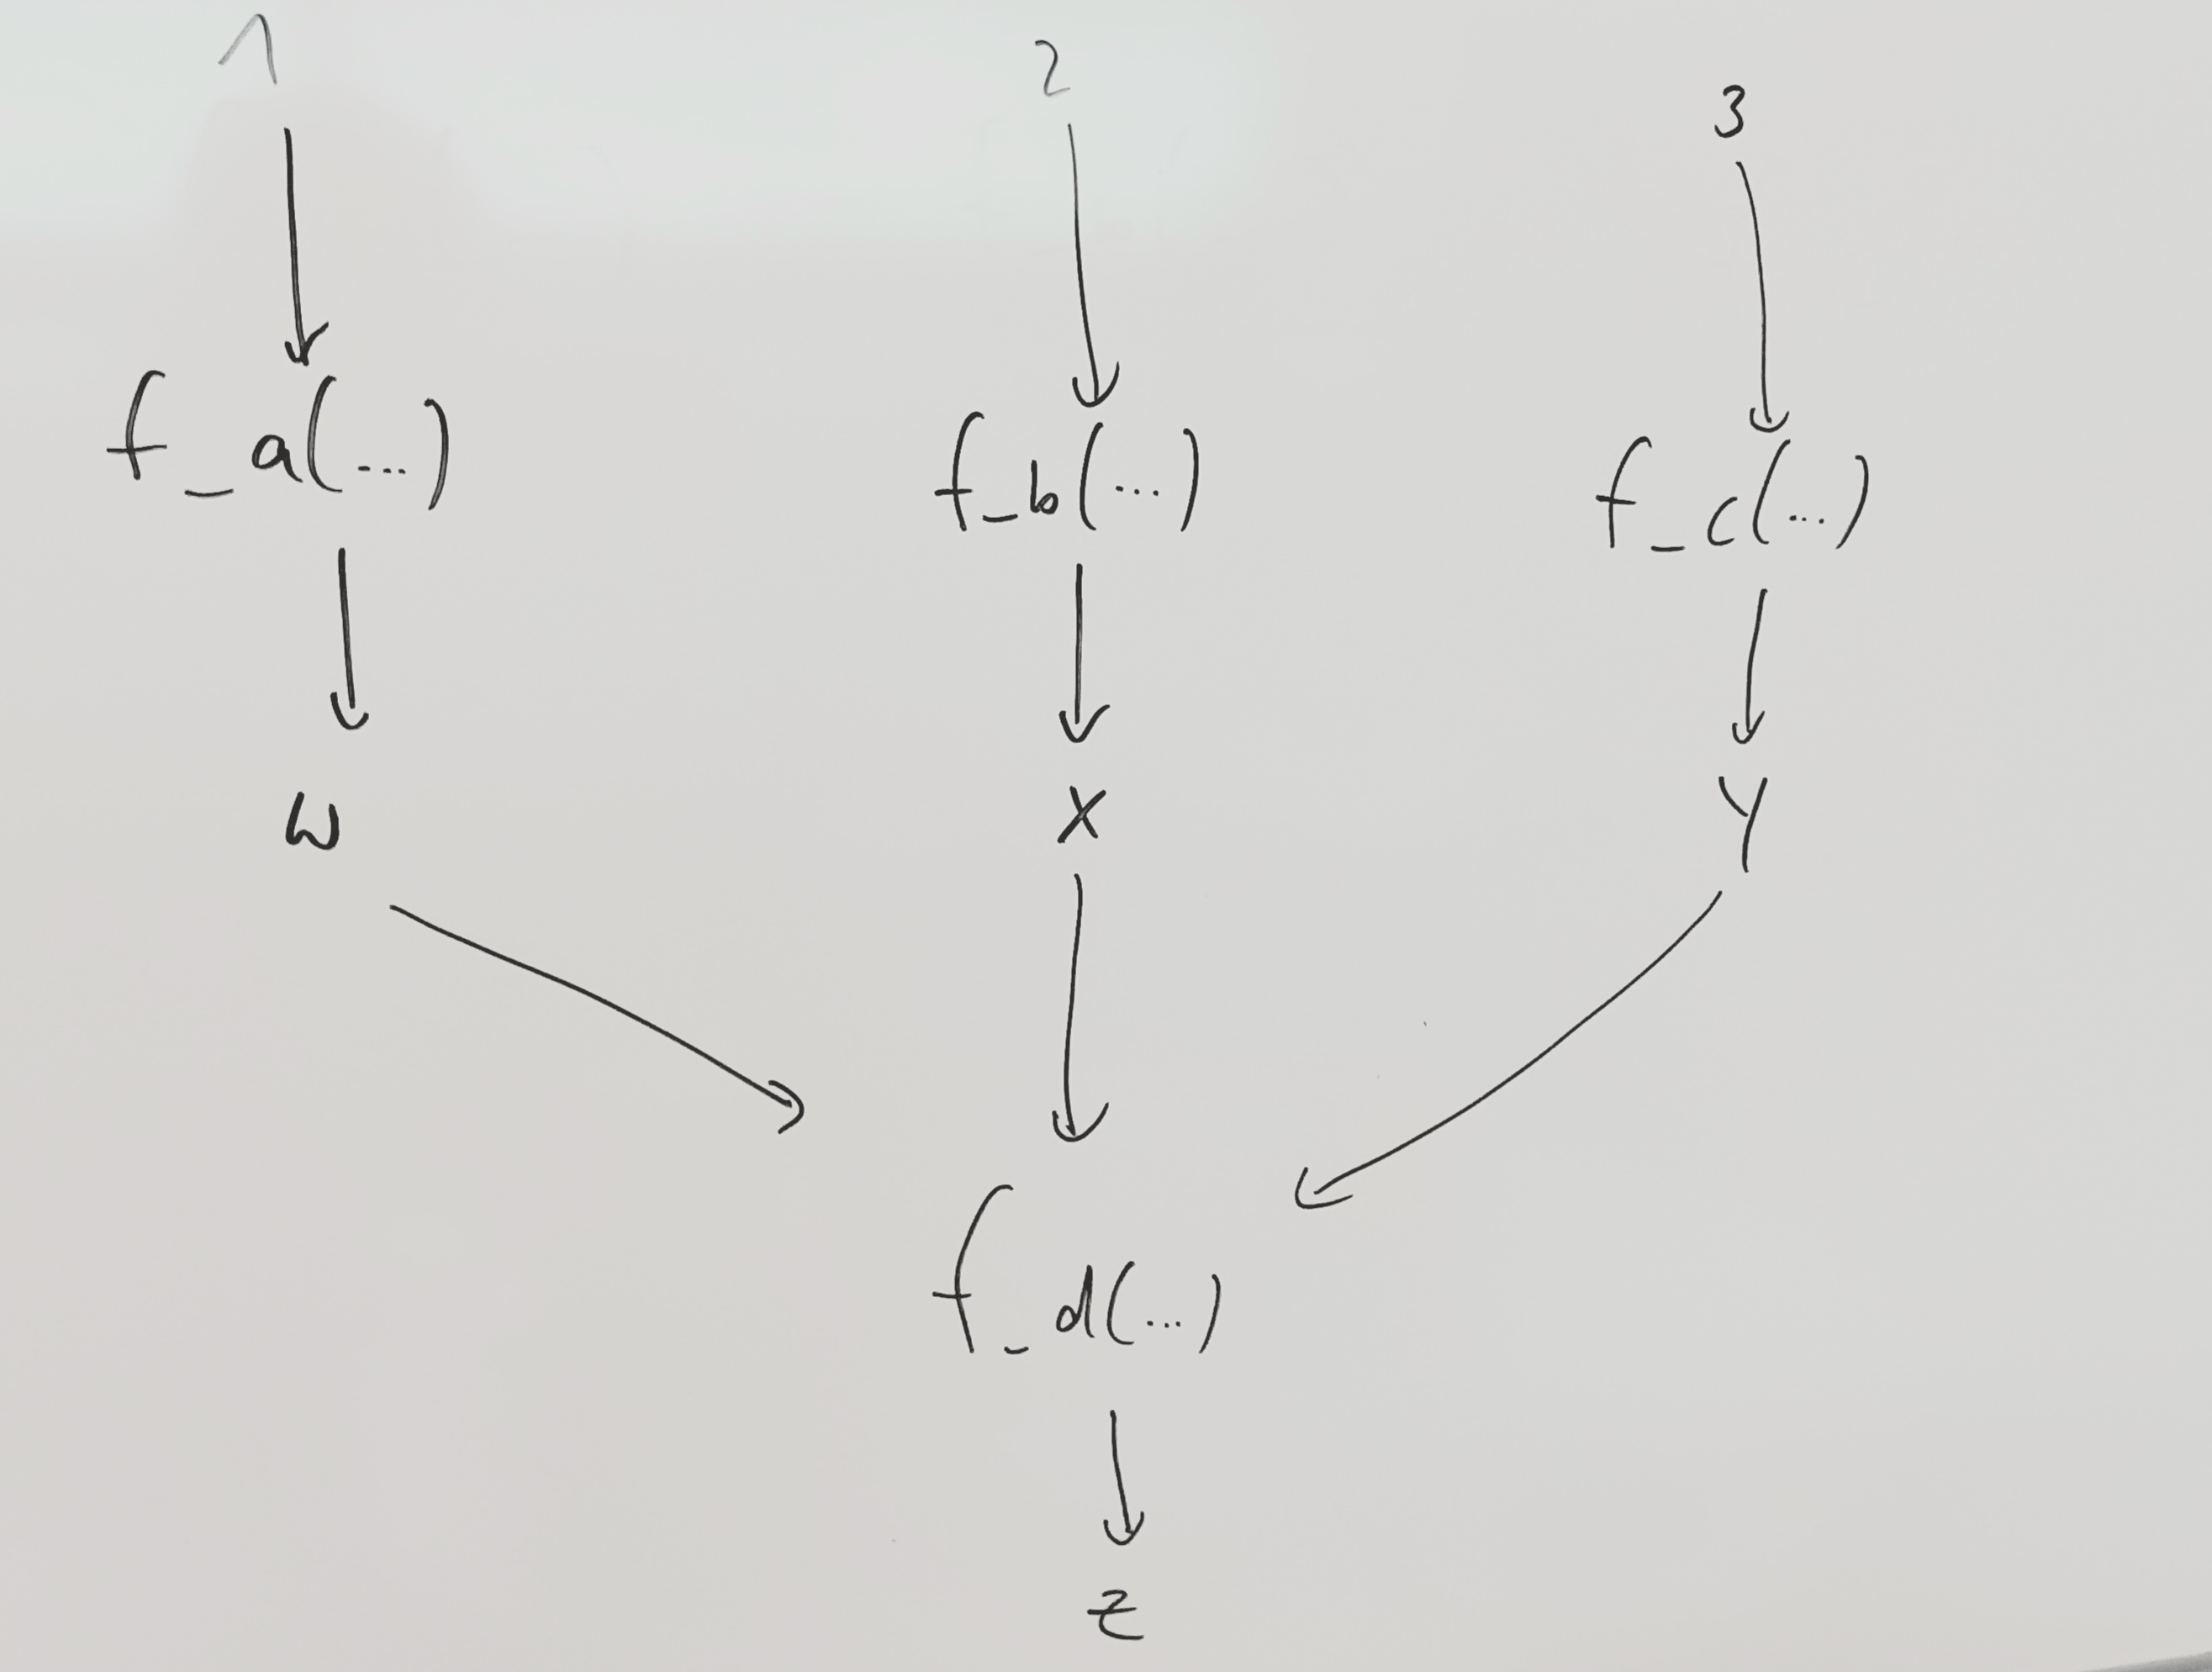 1 2 3
f_a(...) f_b(...) f_c(...)
w x y
f_d(...)
z